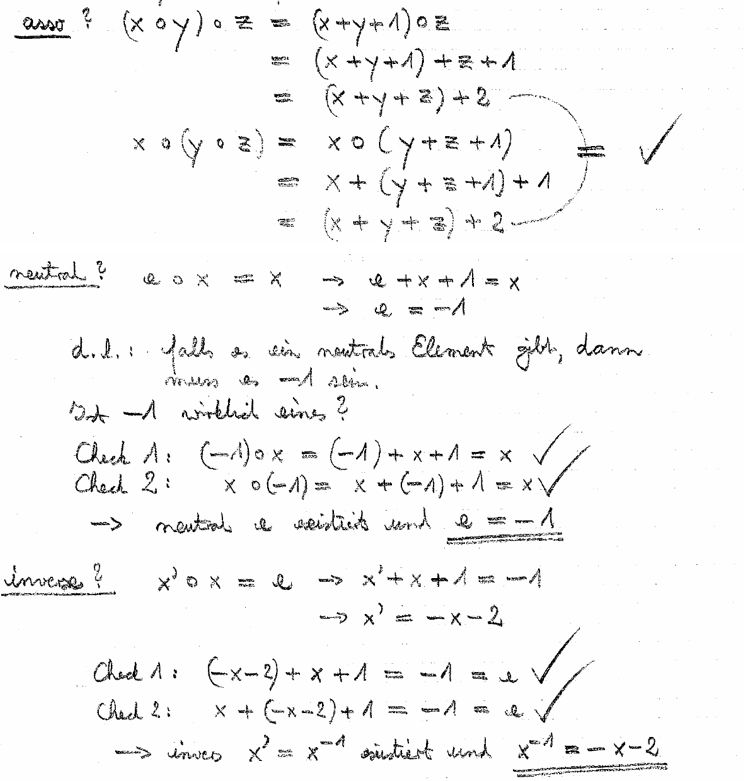 asso ? (x ∘ y) ∘ z = (x+y+1) ∘ z
= (x+y+1) + z + 1
= (x+y+z) + 2
x ∘ (y ∘ z) = x ∘ (y+z+1) = ✓
= x + (y+z+1) + 1
= (x+y+z) + 2
neutral ? e ∘ x = x → e+x+1 = x
→ e = -1
d.h.: falls es ein neutrals Element gibt, dann
muss es -1 sein.
Ist -1 wirklich eines ?
Check 1: (-1) ∘ x = (-1) + x + 1 = x ✓
Check 2: x ∘ (-1) = x + (-1) + 1 = x ✓
→ neutral e existiert und e = -1
inverse ? x' ∘ x = e → x'+x+1 = -1
→ x' = -x-2
Check 1: (-x-2) + x + 1 = -1 = e ✓
Check 2: x + (-x-2) + 1 = -1 = e ✓
→ inves x' = x⁻¹ existiert und x⁻¹ = -x-2